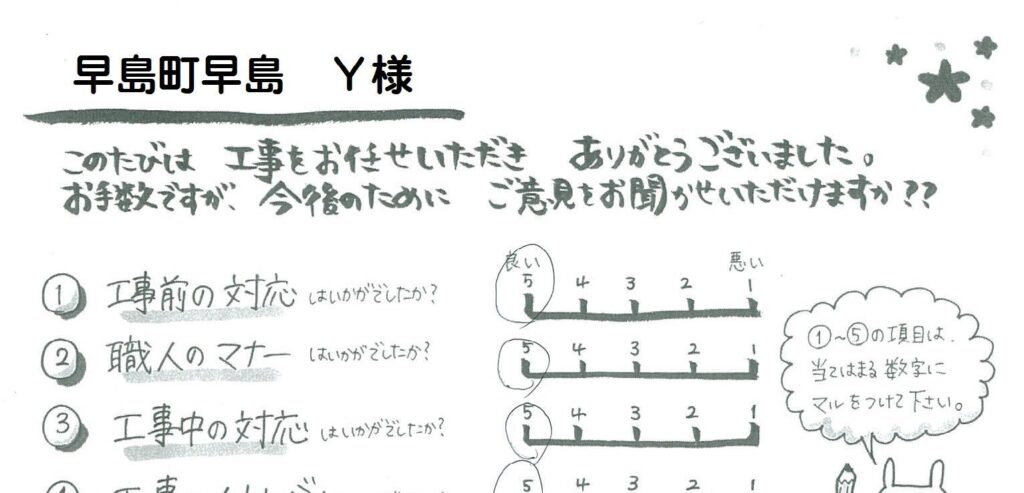 早島町早島 Y様
このたびは 工事をお任せいただき ありがとうございました。
お手数ですが、今後のために ご意見をお聞かせいただけますか??
良い 悪い
① 工事前の対応 はいかがでしたか? 5 4 3 2 1
② 職人のマナー はいかがでしたか? 5 4 3 2 1
③ 工事中の対応 はいかがでしたか? 5 4 3 2 1
5 4 3 2 1
①~⑤の項目は、
当てはまる数字に
マルをつけて下さい。